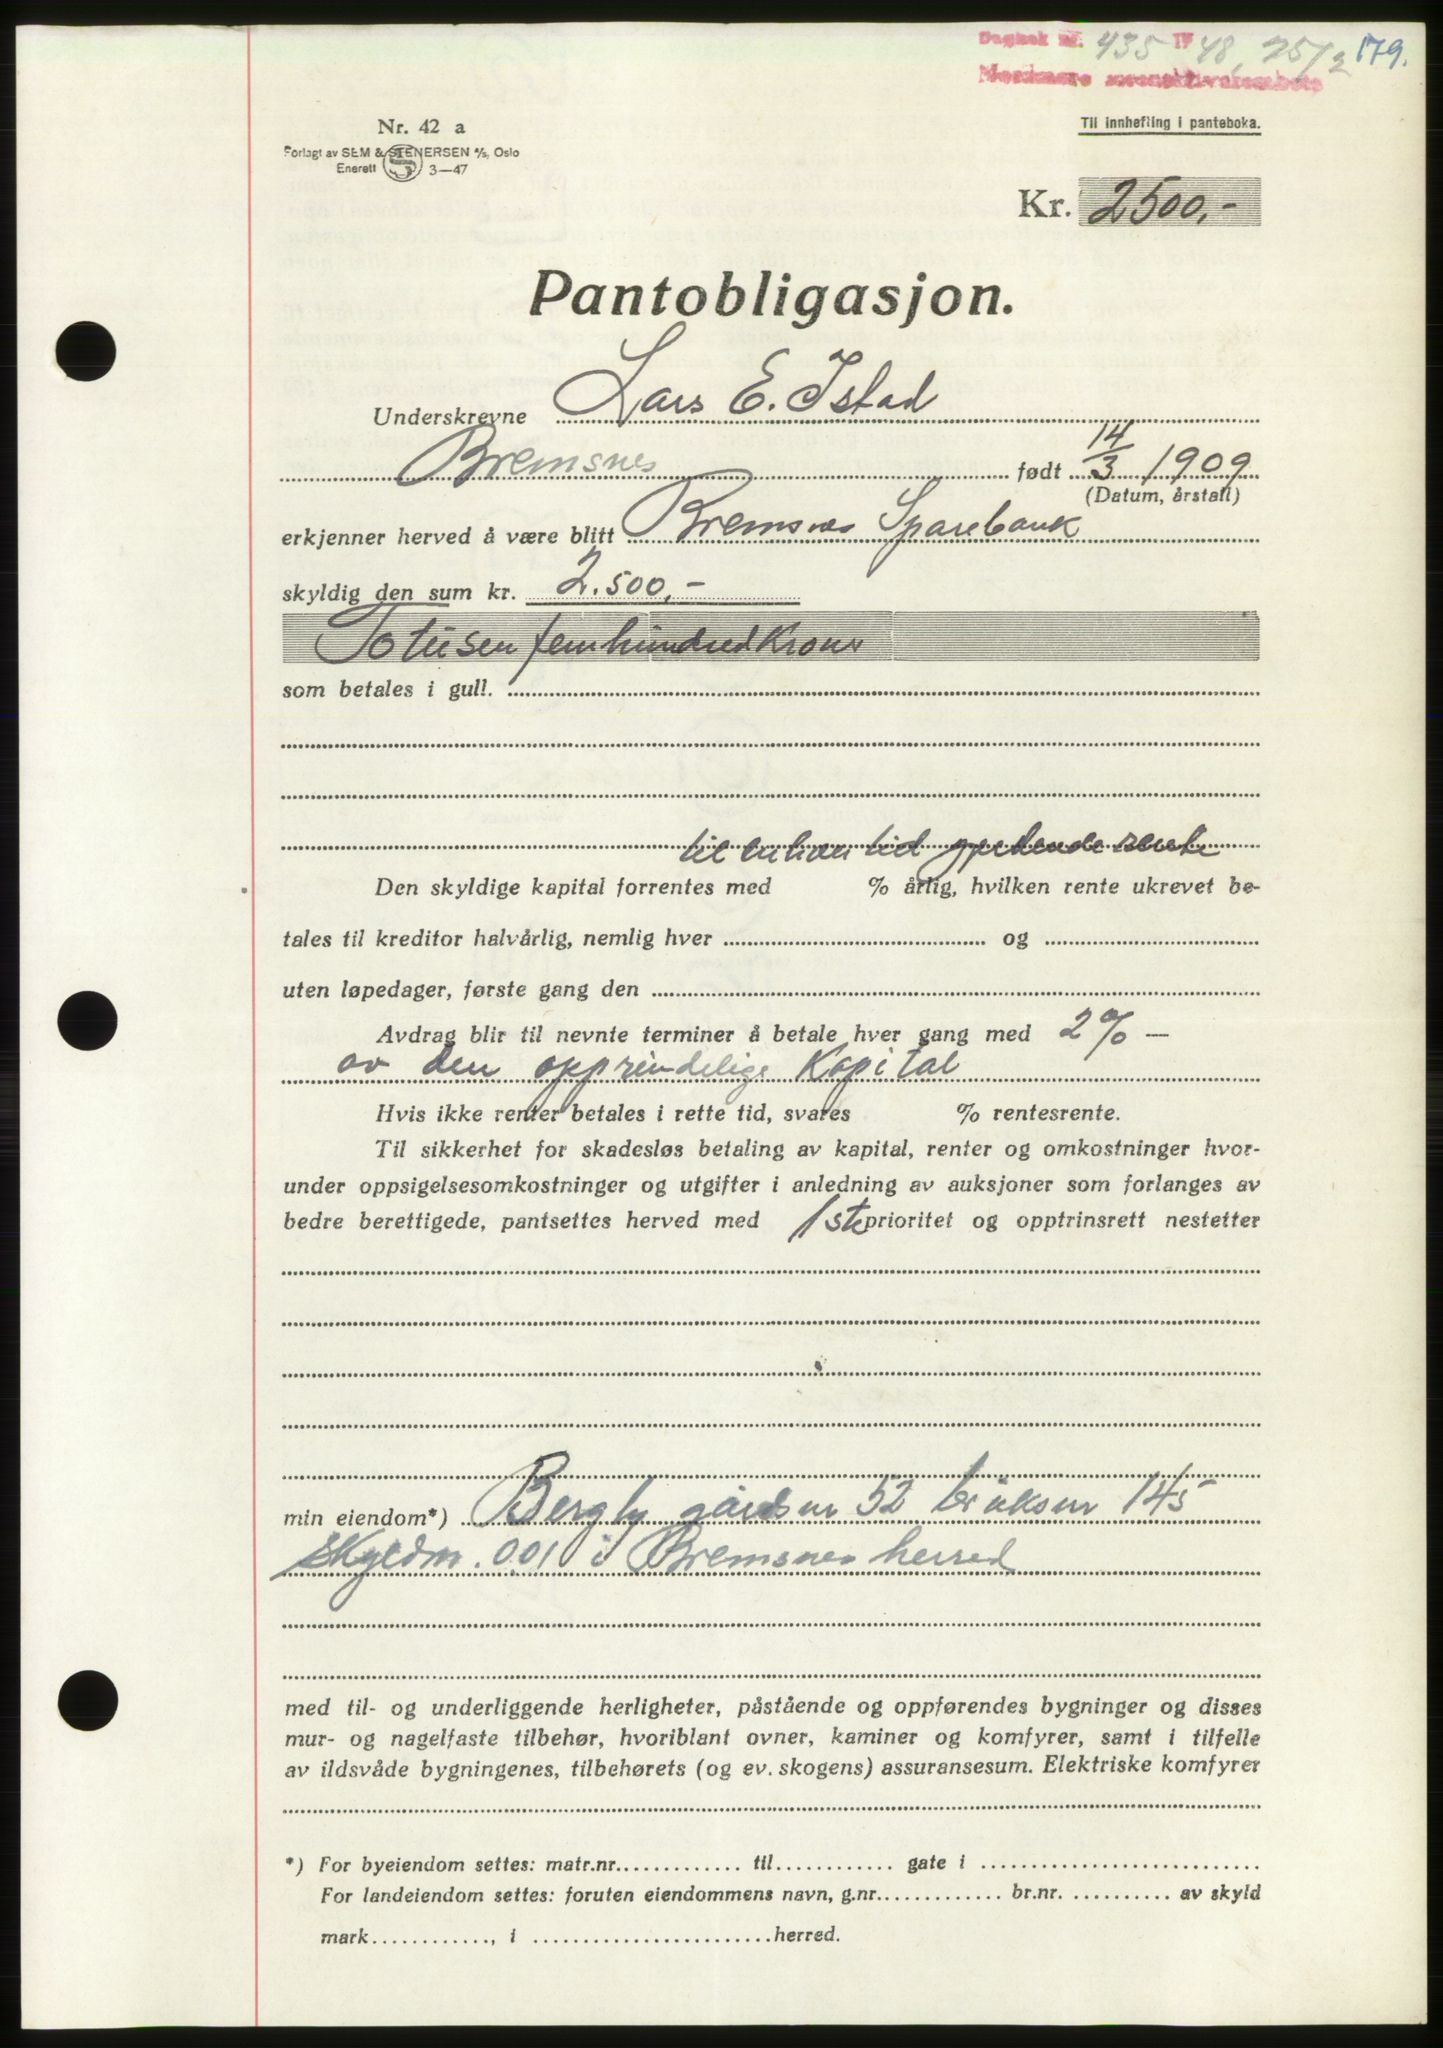 Dagbok nr. 435 IV 48, 25/2 179.
Nordmøre sorenskriverembete
Nr. 42 a
Til innhefting i panteboka.
Forlagt av SEM & STENERSEN A/S, Oslo
Enerett S 3—47
Kr. 2500,-
Pantobligasjon.
Underskrevne Lars E. Istad
Bremsnes født 14/3 1909
(Datum, årstall)
erkjenner herved å være blitt Bremsnes Sparebank
skyldig den sum kr. 2.500,-
Totusen femhundred Kroner
som betales i gull.
til enhver tid gjeldende rente
Den skyldige kapital forrentes med % årlig, hvilken rente ukrevet be-
tales til kreditor halvårlig, nemlig hver og
uten løpedager, første gang den
Avdrag blir til nevnte terminer å betale hver gang med 2% —
av den opprindelige Kapital
Hvis ikke renter betales i rette tid, svares % rentesrente.
Til sikkerhet for skadesløs betaling av kapital, renter og omkostninger hvor-
under oppsigelsesomkostninger og utgifter i anledning av auksjoner som forlanges av
bedre berettigede, pantsettes herved med 1ste prioritet og opptrinsrett nestetter
min eiendom*) Bergly gårdsnr 52 bruksnr 145
Skyldm. 0.01 i Bremsnes herred
med til- og underliggende herligheter, påstående og oppførendes bygninger og disses
mur- og nagelfaste tilbehør, hvoriblant ovner, kaminer og komfyrer, samt i tilfelle
av ildsvåde bygningenes, tilbehørets (og ev. skogens) assuransesum. Elektriske komfyrer
*) For byeiendom settes: matr.nr. til gate i
For landeiendom settes: foruten eiendommens navn, g.nr. br.nr. av skyld
mark , i herred.